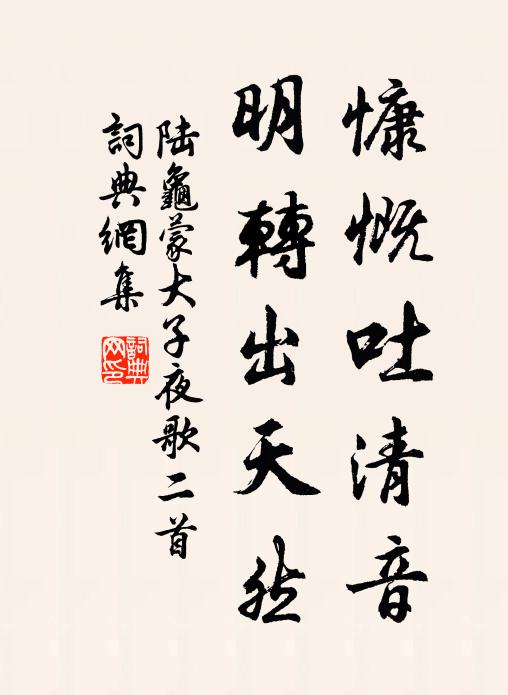 慷慨吐清音
明轉出天然
陆龜蒙大子夜歌二首
詞典網集
詞典
网印